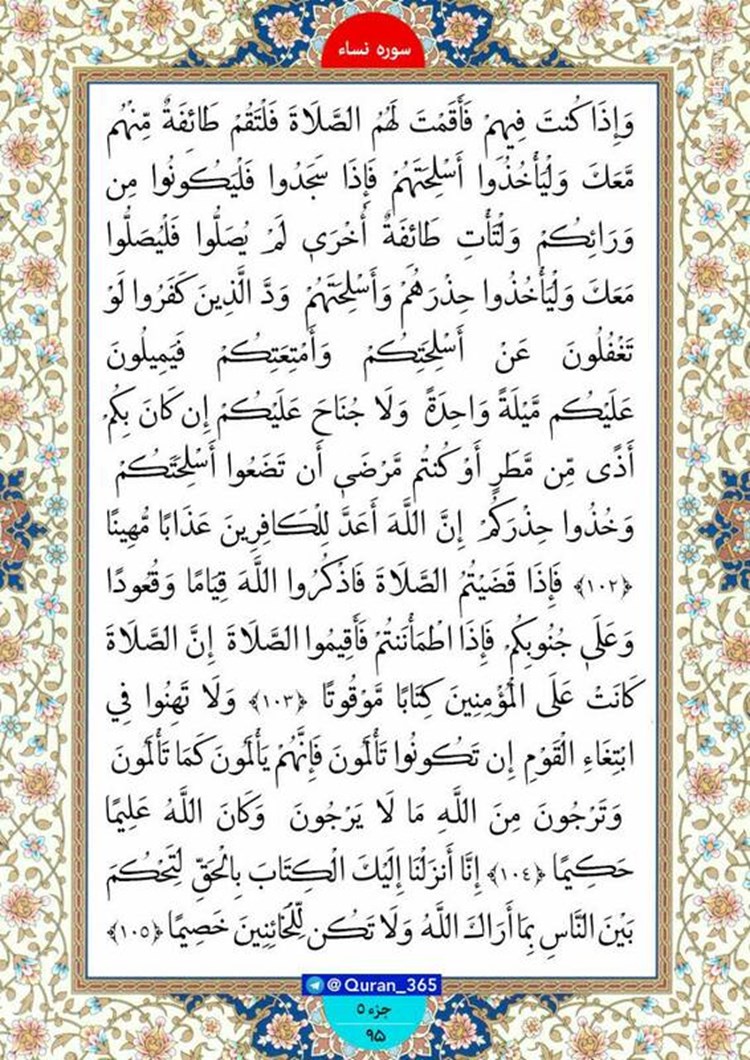 سوره نساء
وَإِذَا كُنتَ فِيهِمْ فَأَقَمْتَ لَهُمُ الصَّلَاةَ فَلْتَقُمْ طَائِفَةٌ مِّنْهُم
مَّعَكَ وَلْيَأْخُذُوا أَسْلِحَتَهُمْ فَإِذَا سَجَدُوا فَلْيَكُونُوا مِن
وَرَائِكُمْ وَلْتَأْتِ طَائِفَةٌ أُخْرَىٰ لَمْ يُصَلُّوا فَلْيُصَلُّوا
مَعَكَ وَلْيَأْخُذُوا حِذْرَهُمْ وَأَسْلِحَتَهُمْ وَدَّ الَّذِينَ كَفَرُوا لَوْ
تَغْفُلُونَ عَنْ أَسْلِحَتِكُمْ وَأَمْتِعَتِكُمْ فَيَمِيلُونَ
عَلَيْكُم مَّيْلَةً وَاحِدَةً وَلَا جُنَاحَ عَلَيْكُمْ إِن كَانَ بِكُمْ
أَذًى مِّن مَّطَرٍ أَوْ كُنتُم مَّرْضَىٰ أَن تَضَعُوا أَسْلِحَتَكُمْ
وَخُذُوا حِذْرَكُمْ إِنَّ اللَّهَ أَعَدَّ لِلْكَافِرِينَ عَذَابًا مُّهِينًا
﴿١٠٢﴾ فَإِذَا قَضَيْتُمُ الصَّلَاةَ فَاذْكُرُوا اللَّهَ قِيَامًا وَقُعُودًا
وَعَلَىٰ جُنُوبِكُمْ فَإِذَا اطْمَأْنَنتُمْ فَأَقِيمُوا الصَّلَاةَ إِنَّ الصَّلَاةَ
كَانَتْ عَلَى الْمُؤْمِنِينَ كِتَابًا مَّوْقُوتًا ﴿١٠٣﴾ وَلَا تَهِنُوا فِي
ابْتِغَاءِ الْقَوْمِ إِن تَكُونُوا تَأْلَمُونَ فَإِنَّهُمْ يَأْلَمُونَ كَمَا تَأْلَمُونَ
وَتَرْجُونَ مِنَ اللَّهِ مَا لَا يَرْجُونَ وَكَانَ اللَّهُ عَلِيمًا
حَكِيمًا ﴿١٠٤﴾ إِنَّا أَنزَلْنَا إِلَيْكَ الْكِتَابَ بِالْحَقِّ لِتَحْكُمَ
بَيْنَ النَّاسِ بِمَا أَرَاكَ اللَّهُ وَلَا تَكُن لِّلْخَائِنِينَ خَصِيمًا ﴿١٠٥﴾
@Quran_365
جزء ۵
۹۵